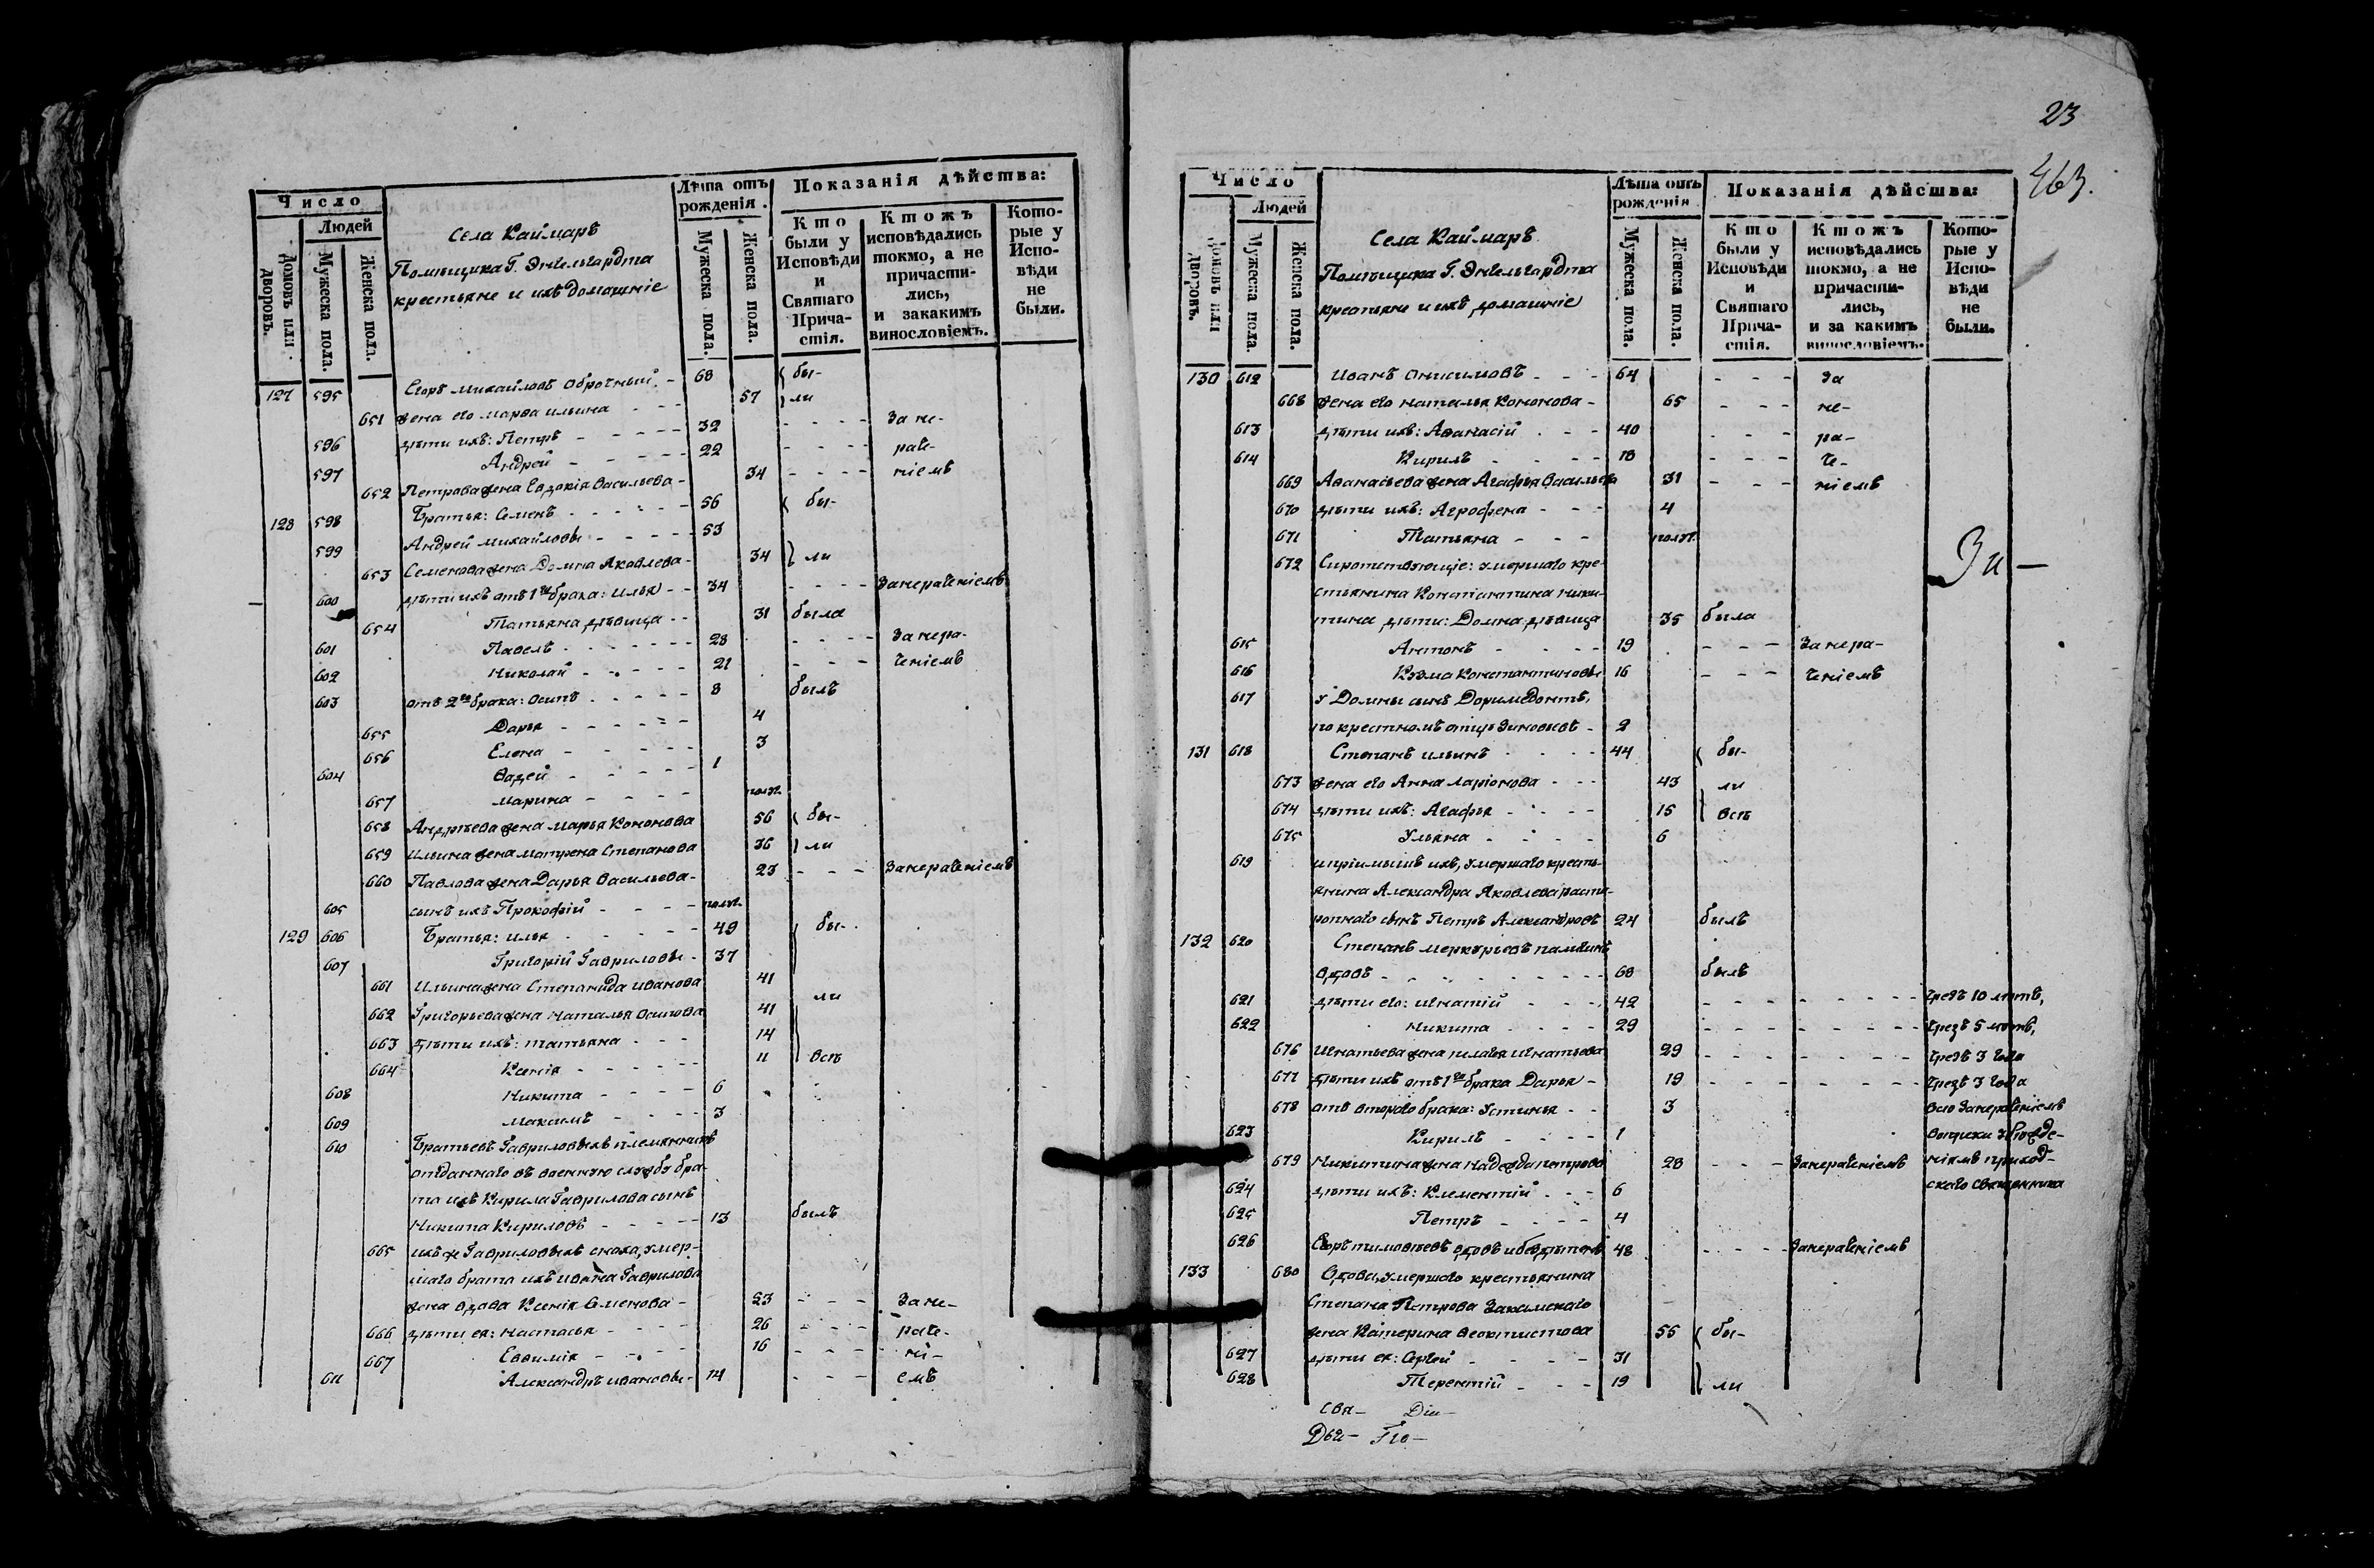 Число
Людей
Домовъ или дворовъ.
Мужеска пола.
Женска пола.
Села Каймаръ
Помѣщика Г. Энгельгардта
крестьяне и ихъ домашніе
Лѣта отъ рожденія.
Мужеска пола.
Женска пола.
Показанія дѣйства:
Кто были у Исповѣди и Святаго Причастія.
Ктожъ исповѣдались токмо, а не причастились, и закакимъ винословіемъ.
Которые у Исповѣди не были.
127 595 Егоръ Михайловъ Оброчный - 68 бы-
651 жена его Марѳа Ильина - - 57 ли
596 дѣти ихъ: Петръ - - - - 32 - - - - За не-
597 Андрей - - - - - 22 - - - - раче-
652 Петрова жена Евдокія Васильева - 34 - - - - ніемъ
128 598 Братья: Семенъ - - - - - 56 бы-
599 Андрей Михайловы - - - - 53
653 Семенова жена Домна Яковлева - 34 ли
600 дѣти ихъ отъ 1го брака: Илья - - 34 - - - - Занераченіемъ
654 Татьяна дѣвица - - 31 была
601 Павелъ - - - - - - 28 - - - - За нера-
602 Николай - - - - - 21 - - - ченіемъ
603 отъ 2го брака: Осипъ - - - - - 8 былъ
655 Дарья - - - - - - 4
656 Елена - - - - - 3
604 Ѳадей - - - - - 1
657 Марина - - - - полг.
658 Андрѣева жена Марья Кононова 56 бы-
659 Ильина жена Матрена Степанова 36 ли
660 Павлова жена Дарья Васильева - 23 - - - Занераченіемъ
605 сынъ ихъ Прокофій - - - - полг.
129 606 Братья: Илья - - - - - 49 бы-
607 Григорій Гавриловы - 37
661 Ильина жена Степанида Иванова 41
662 Григорьева жена Наталья Осипова 41 ли
663 дѣти ихъ: Татьяна - - - 14
664 Ксенія - - - - - - 11 всѣ
608 Никита - - - - 6
609 Максимъ - - - - 3
610 Братьевъ Гавриловыхъ племянникъ
отданнаго въ военную службу бра-
та ихъ Кирила Гаврилова сынъ
Никита Кириловъ - - - - - 13 былъ
665 ихъ же Гавриловыхъ сноха, умер-
шаго брата ихъ Ивана Гаврилова
жена вдова Ксенія Семенова - 53 - - - За не-
666 дѣти ея: Настасья - - - - 26 - - - раче-
667 Евѳимія - - - - 16 - - - ні-
611 Александръ Ивановы - 14 - - - емъ
23
463.
Число
Людей
Домовъ или дворовъ.
Мужеска пола.
Женска пола.
Села Каймаръ
Помѣщика Г. Энгельгардта
крестьяне и ихъ домашніе
Лѣта отъ рожденія
Мужеска пола.
Женска пола.
Показанія дѣйства:
Кто были у Исповѣди и Святаго Причастія.
Ктожъ исповѣдались токмо, а не причастились, и за какимъ винословіемъ.
Которые у Исповѣди не были.
130 612 Иванъ Онисимовъ - - - 64 - - - За
668 жена его Наталья Кононова - 65 - - - не-
613 дѣти ихъ: Аѳанасій - - - 40 - - - ра-
614 Кирилъ - - - - 18 - - - че-
669 Аѳанасьева жена Агафья Васильева 31 - - - ніемъ
670 дѣти ихъ: Агрофена - - - 4
671 Татьяна - - - полг.
672 Сиротствующіе: умершаго кре-
стьянина Константина Ники-
тина дѣти: Домна дѣвица 35 была
615 Антонъ - - - - 19 - - - За нера-
616 Кузма Константиновы 16 - - - ченіемъ
617 у Домны сынъ Доримедонтъ,
по крестномъ отцѣ Зиновьевъ - 2
131 618 Степанъ Ильинъ - - - - 44 бы-
673 жена его Анна Ларіонова - - - 43 ли
674 дѣти ихъ: Агафья - - - - 15 всѣ
675 Ульяна - - - - 6
619 и пріимышъ ихъ, умершаго кресть-
янина Александра Яковлева
сынъ Петръ Александровъ 24 былъ
132 620 Степанъ Меркурьевъ
вдовъ - - - - - - - - 68 былъ
621 дѣти его: Игнатій - - - - 42 - - - - - - - - чрезъ 10 лѣтъ,
622 Никита - - - - 29 - - - - - - - - чрезъ 5 лѣтъ,
676 Игнатьева жена Пелагья Игнатьева 29 - - - - - - - - чрезъ 3 года
677 дѣти ихъ отъ 1го брака Дарья - 19 - - - - - - - - чрезъ 3 года
678 отъ втораго брака: Устинья - - 3 все Занераченіемъ
623 Кирилъ - - - - 1 вопреки убѣжде-
679 Никитина жена Надежда Петрова 28 - - - Занераченіемъ ніямъ приход-
624 дѣти ихъ: Клементій - - - 6 скаго священника
625 Петръ - - - - 4
626 Егоръ Тимоѳеевъ вдовъ и бездѣтенъ 48 - - - - Занераченіемъ
133 680 Вдова, умершаго крестьянина
Степана Петрова Закамскаго
жена Катерина Ѳеоктистова 55 бы-
627 дѣти ея: Сергей - - - - 31
628 Терентій - - - 19 ли
Свя- Діи-